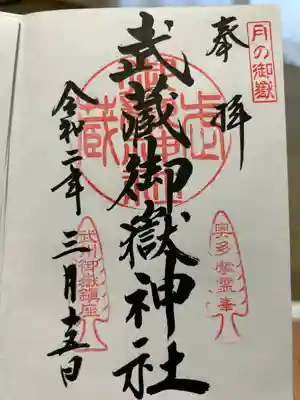 月の御嶽
奉拝
武藏御嶽神社
令和二年三月十五日
奥多摩霊峯
武州御嶽鎮座